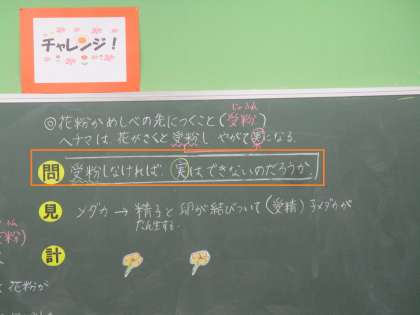 チャレンジ!
◎花粉がめしべの先につくこと(受粉)
じゅふん
ヘチマは 花がさくと受粉し やがて実になる
問 受粉しなければ 実は、できないのだろうか。
見 メダカ → 精子と卵が結びついて(受精)子メダカが
たん生する。
計
花粉が